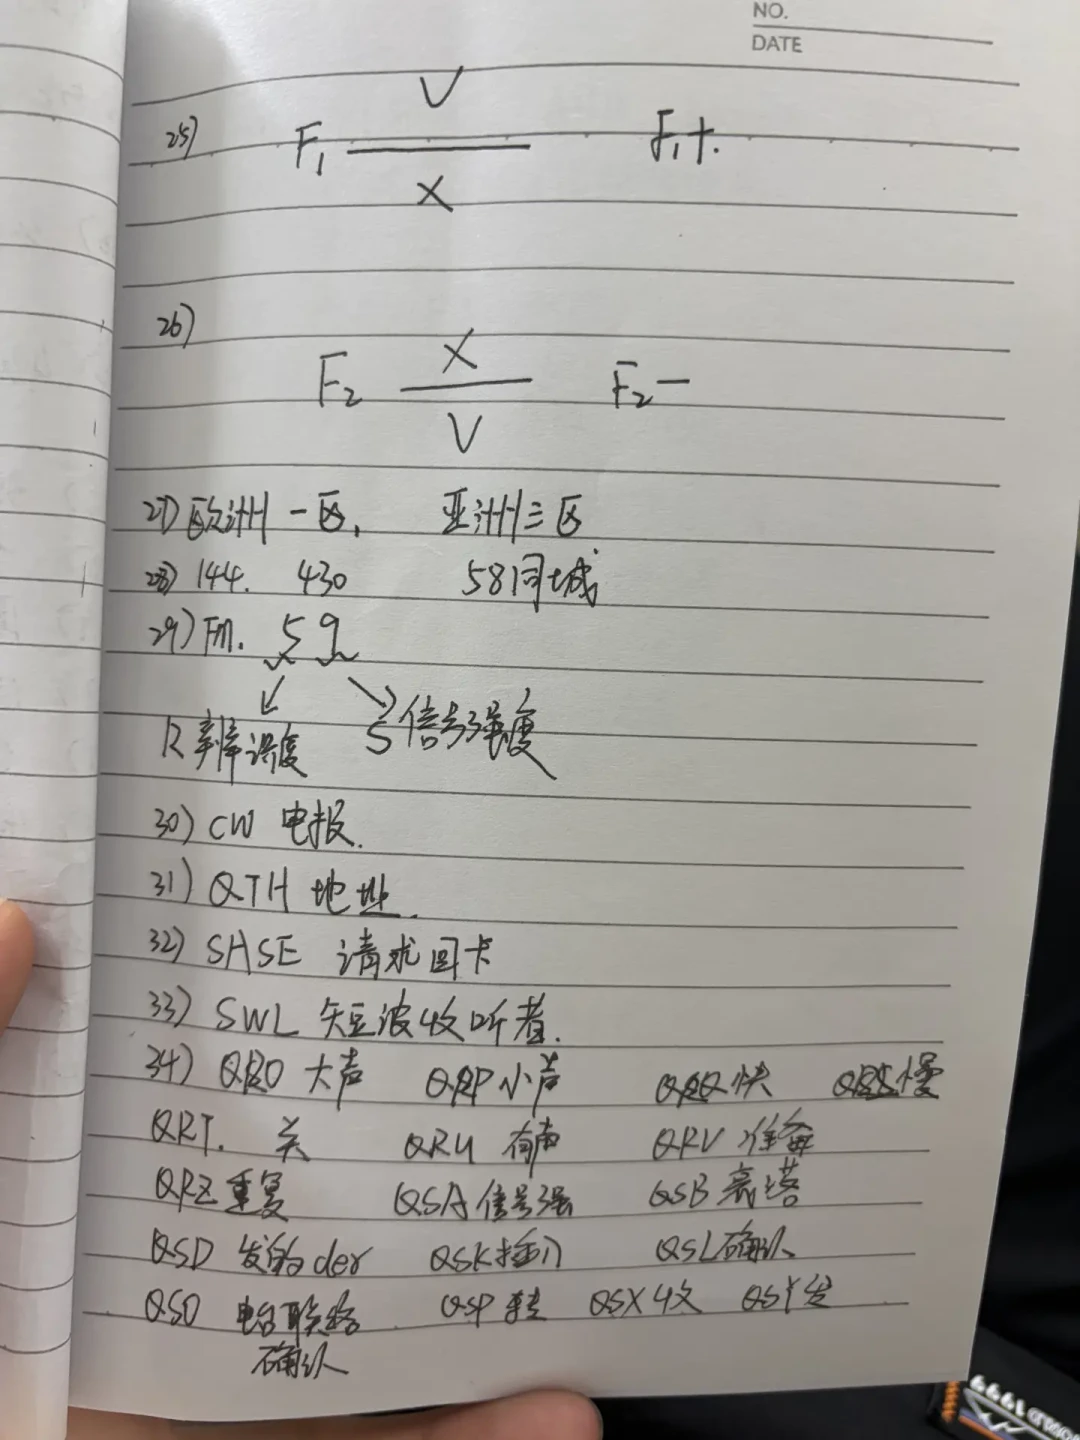 NO.
DATE
V
25) F₁ —— F₁+.
X
26)
X
F₂ —— F₂ —
V
27) 欧洲一区, 亚洲三区
28) 144. 430 58同城
29) FM. 59
R 辨识度 S 信号强度
30) CW 电报.
31) QTH 地址.
32) SASE 请求回卡
33) SWL 短波收听者.
34) QRO 大声 QRP 小声 QRQ 快 QRS 慢
QRT. 关 QRU 有声 QRV 准备
QRZ 重复 QSA 信号强 QSB 衰
QSD 发的 der QSK 插入 QSL 确认
QSO 电台联络 QSP 转 QSX 收 QSY 发
确认
1999